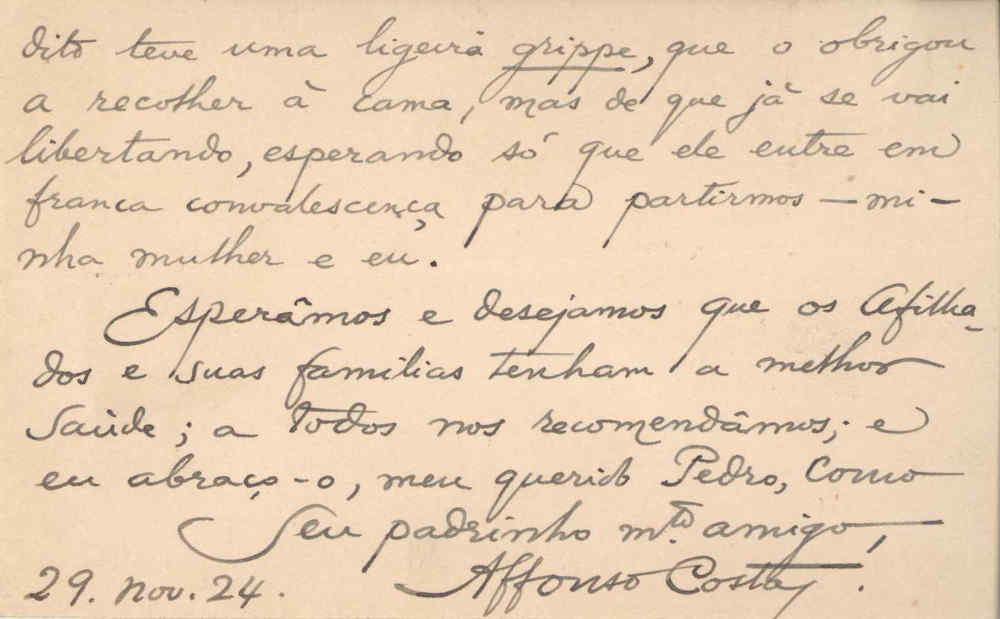 dito teve uma ligeira grippe, que o obrigou
a recolher à cama, mas de que já se vai
libertando, esperando só que ele entre em
franca convalescença para partirmos — mi-
nha mulher e eu.
Esperâmos e desejamos que os Afilha-
dos e suas familias tenham a melhor
saúde; a todos nos recomendâmos; e
eu abraço-o, meu querido Pedro, como
Seu padrinho m.to amigo,
Affonso Costa.
29. Nov. 24.